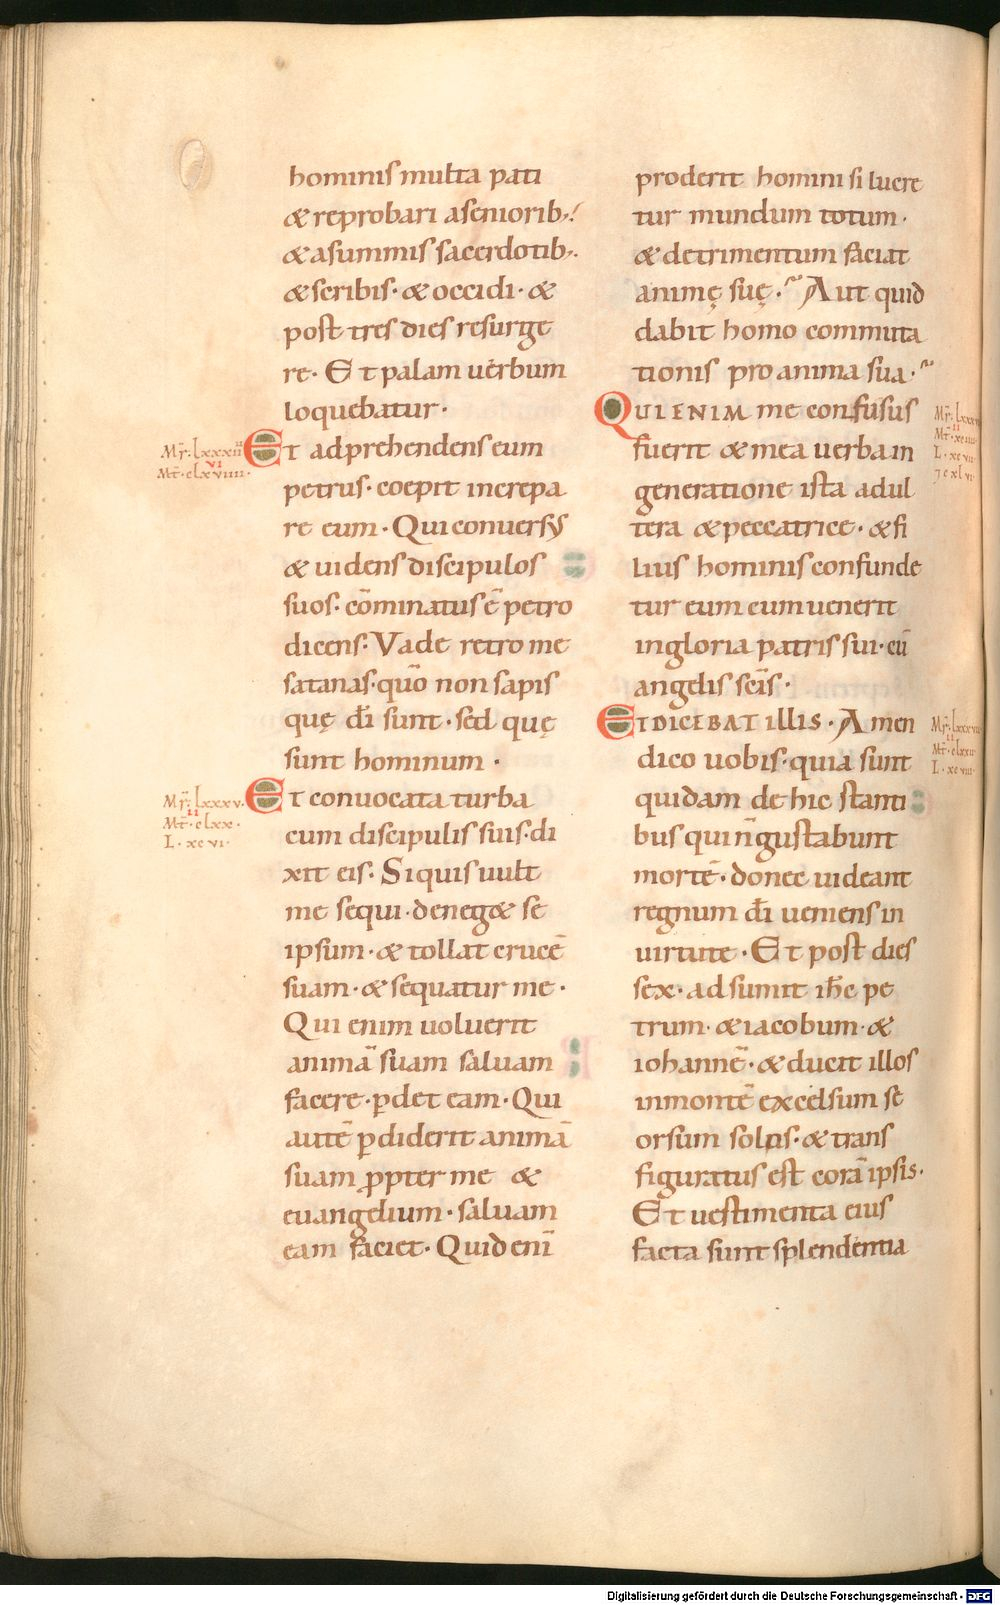 hominis multa pati
& reprobari aseniorib;
& asummis sacerdotib;.
& scribis· & occidi· &
post tres dies resurge
re· Et palam uerbum
loquebatur·
Mr̄· lxxxiii
Et adprehendens eum
VI
Mt̄· clxviiii·
petrus· coepit increpa
re eum· Qui conuersus
& uidens discipulos
suos· cōminatus ē petro
dicens· Vade retro me
satanas· quō non sapis
quę dī sunt· sed quę
sunt hominum·
Mr̄· lxxxv·
Et conuocata turba
II
Mt̄· clxx·
cum discipulis suis· di
L· xcvi·
xit eis· Si quis uult
me sequi· deneg& se
ipsum· & tollat crucē
suam· & sequatur me·
Qui enim uoluerit
animā suam saluam
facere· ꝑdet eam· Qui
autē ꝑdiderit animā
suam ꝓpter me &
euangelium· saluam
eam faciet· Quid enī
proderit homini si lucre
tur mundum totum·
& detrimentum faciat
animę suę· Aut quid
dabit homo commuta
tionis pro anima sua·
QUI ENIM me confusus
fuerit & mea uerba in
generatione ista adul
tera & peccatrice· & fi
lius hominis confunde
tur eum cum uenerit
in gloria patris sui· cū
angelis scīs·
ET DICEBAT illis· Amen
dico uobis· quia sunt
quidam de hic stanti
bus qui n̄ gustabunt
mortē· donec uideant
regnum dī ueniens in
uirtute· Et post dies
sex· adsumit ihc̄ pe
trum· & iacobum· &
iohannē· & ducit illos
in montē excelsum se
orsum solos· & trans
figuratus est corā ipsis·
Et uestimenta eius
facta sunt splendentia
Digitalisierung gefördert durch die Deutsche Forschungsgemeinschaft - DFG